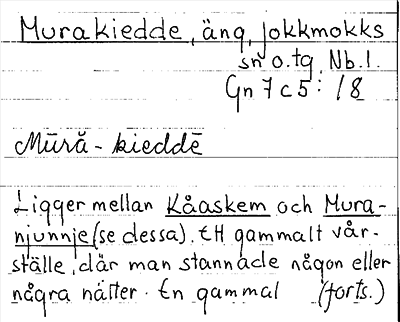 Murakiedde, äng, Jokkmokks
sn o. tg, Nb. l.
Gn 7 c 5: 18
Mūră - kieddē
Ligger mellan Kåaskem och Mura-
njunnje (se dessa). Ett gammalt vår-
ställe, där man stannade någon eller
några nätter. En gammal (forts.)